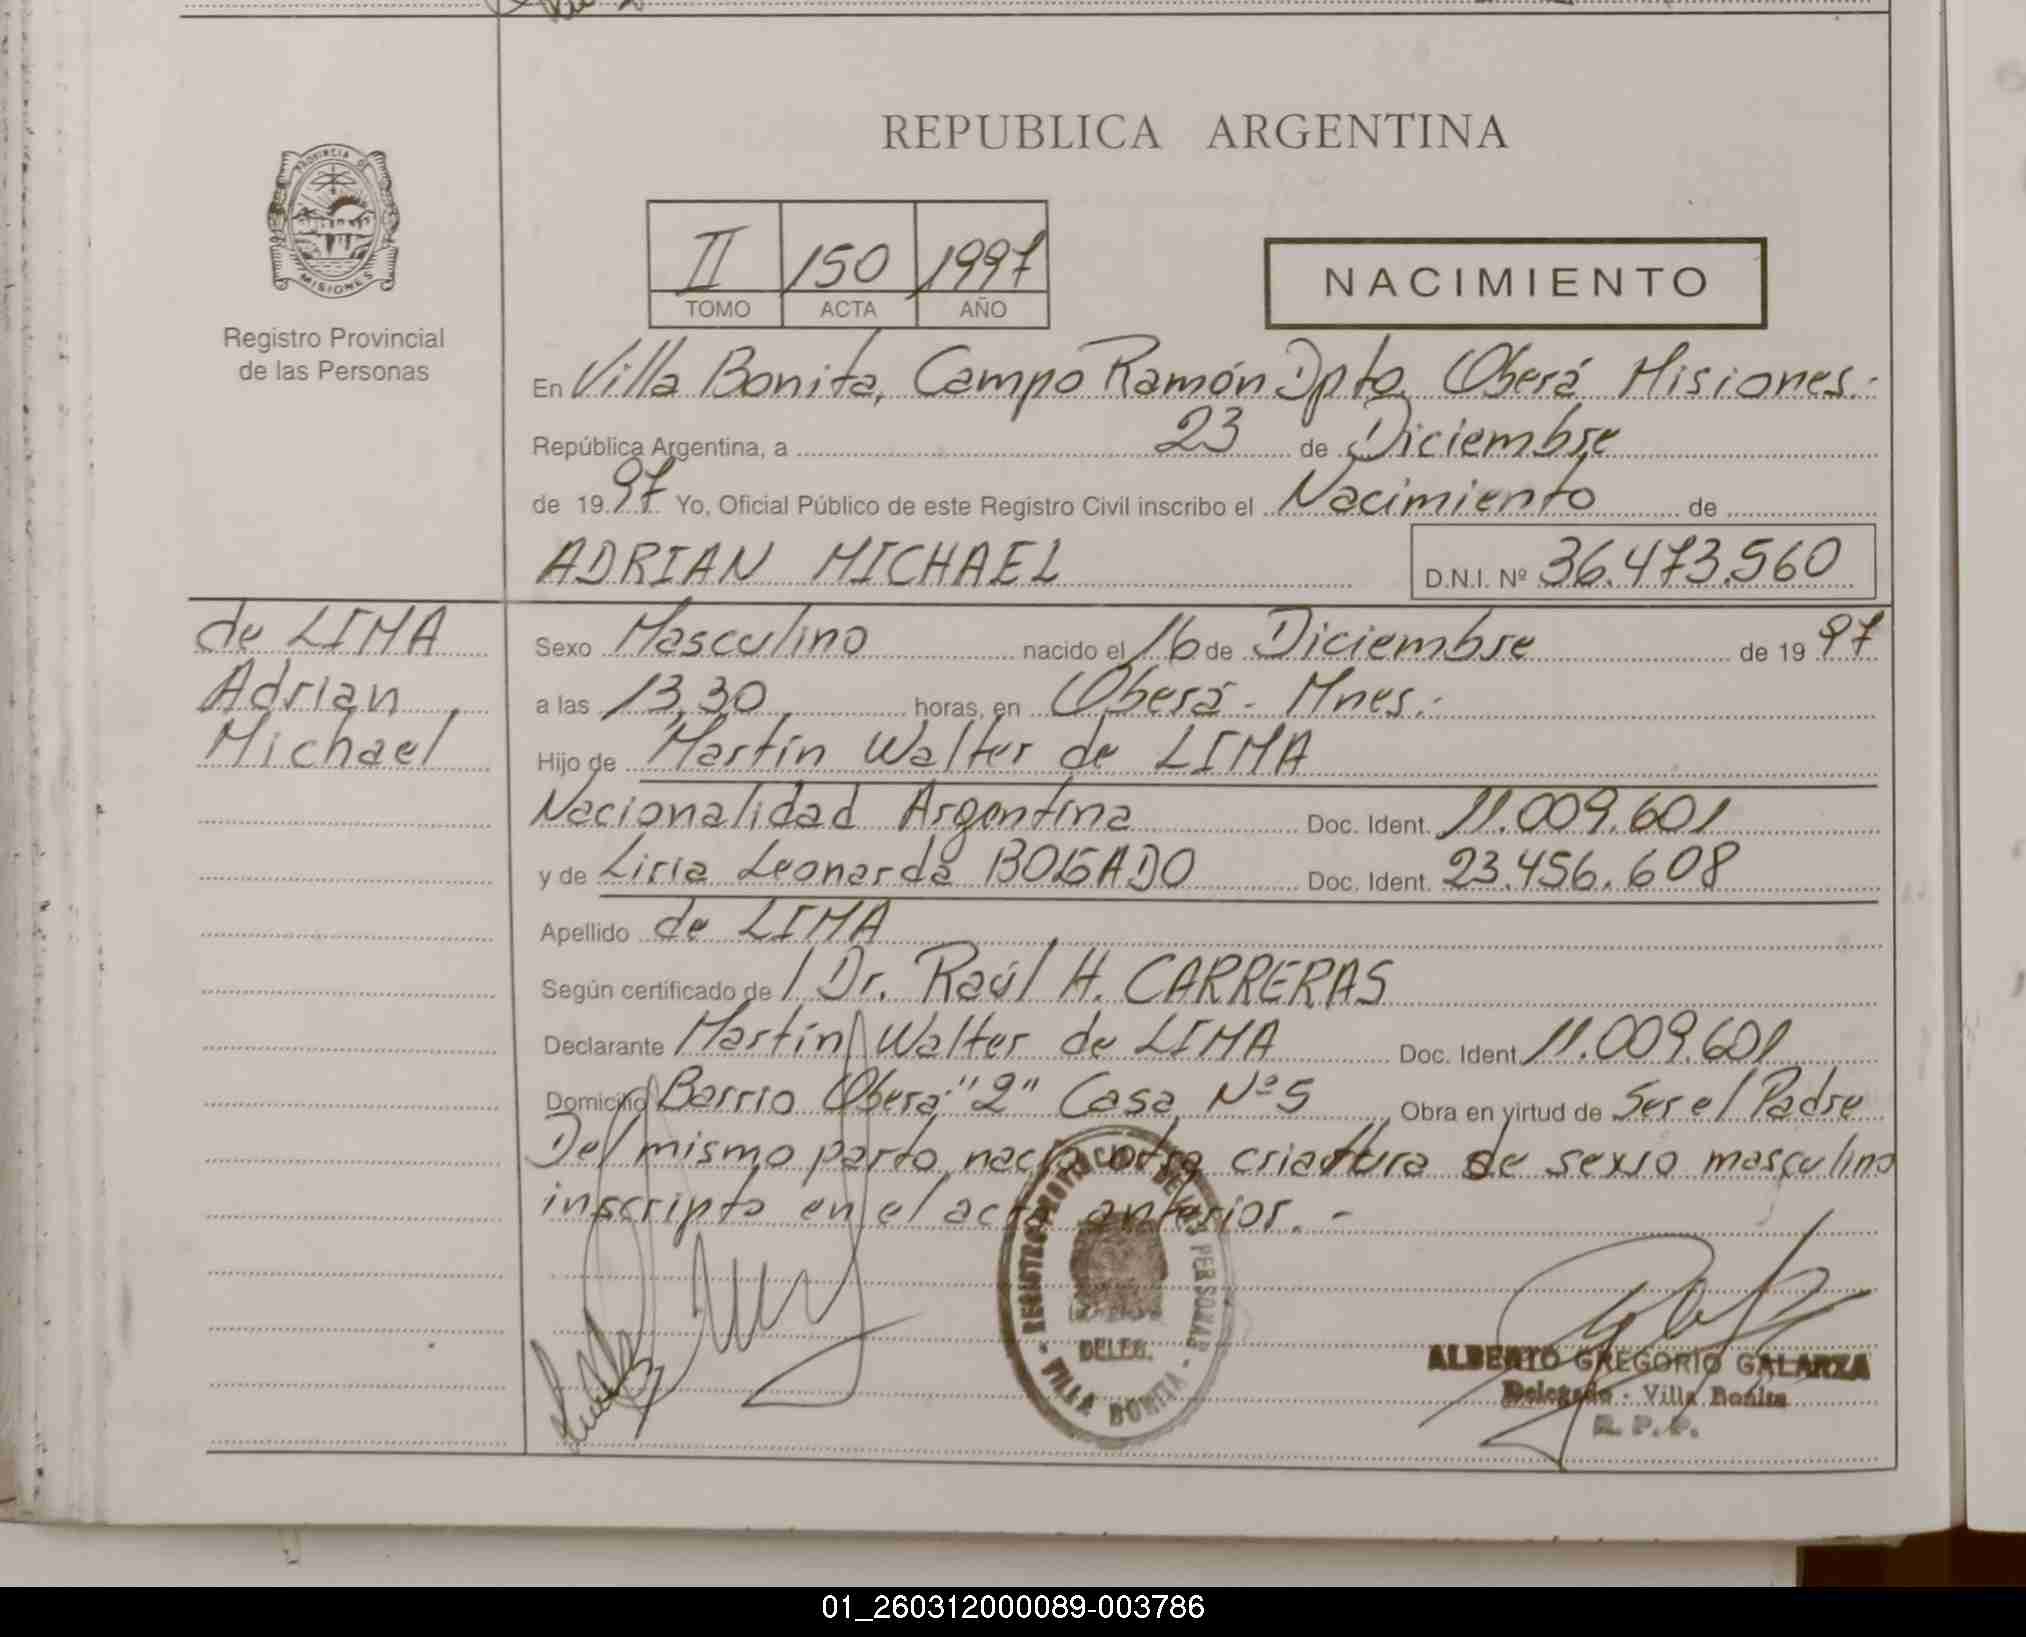 REPUBLICA ARGENTINA
PROVINCIA DE MISIONES
Registro Provincial
de las Personas
II 150 1997
TOMO ACTA AÑO
NACIMIENTO
En Villa Bonita, Campo Ramón Dpto. Oberá Misiones.-
República Argentina, a 23 de Diciembre
de 1997 Yo, Oficial Público de este Registro Civil inscribo el Nacimiento de
ADRIAN MICHAEL D.N.I. Nº 36.473.560
de LIMA
Adrian
Michael
Sexo Masculino nacido el 16 de Diciembre de 1997
a las 13,30 horas, en Oberá - Mnes.-
Hijo de Martín Walter de LIMA
Nacionalidad Argentina Doc. Ident. 11.009.601
y de Liria Leonarda BOGADO Doc. Ident. 23.456.608
Apellido de LIMA
Según certificado de / Dr. Raúl H. CARRERAS
Declarante Martín Walter de LIMA Doc. Ident 11.009.601
Domicilio Barrio Oberá "2" Casa Nº 5 Obra en virtud de Ser el Padre
Del mismo parto nació otra criatura de sexso masculino
inscripto en el acta anterior.-
REGISTRO PROVINCIAL DE LAS PERSONAS
DELEG.
VILLA BONITA
ALBERTO GREGORIO GALARZA
Delegado - Villa Bonita
R. P. P.
01_260312000089-003786